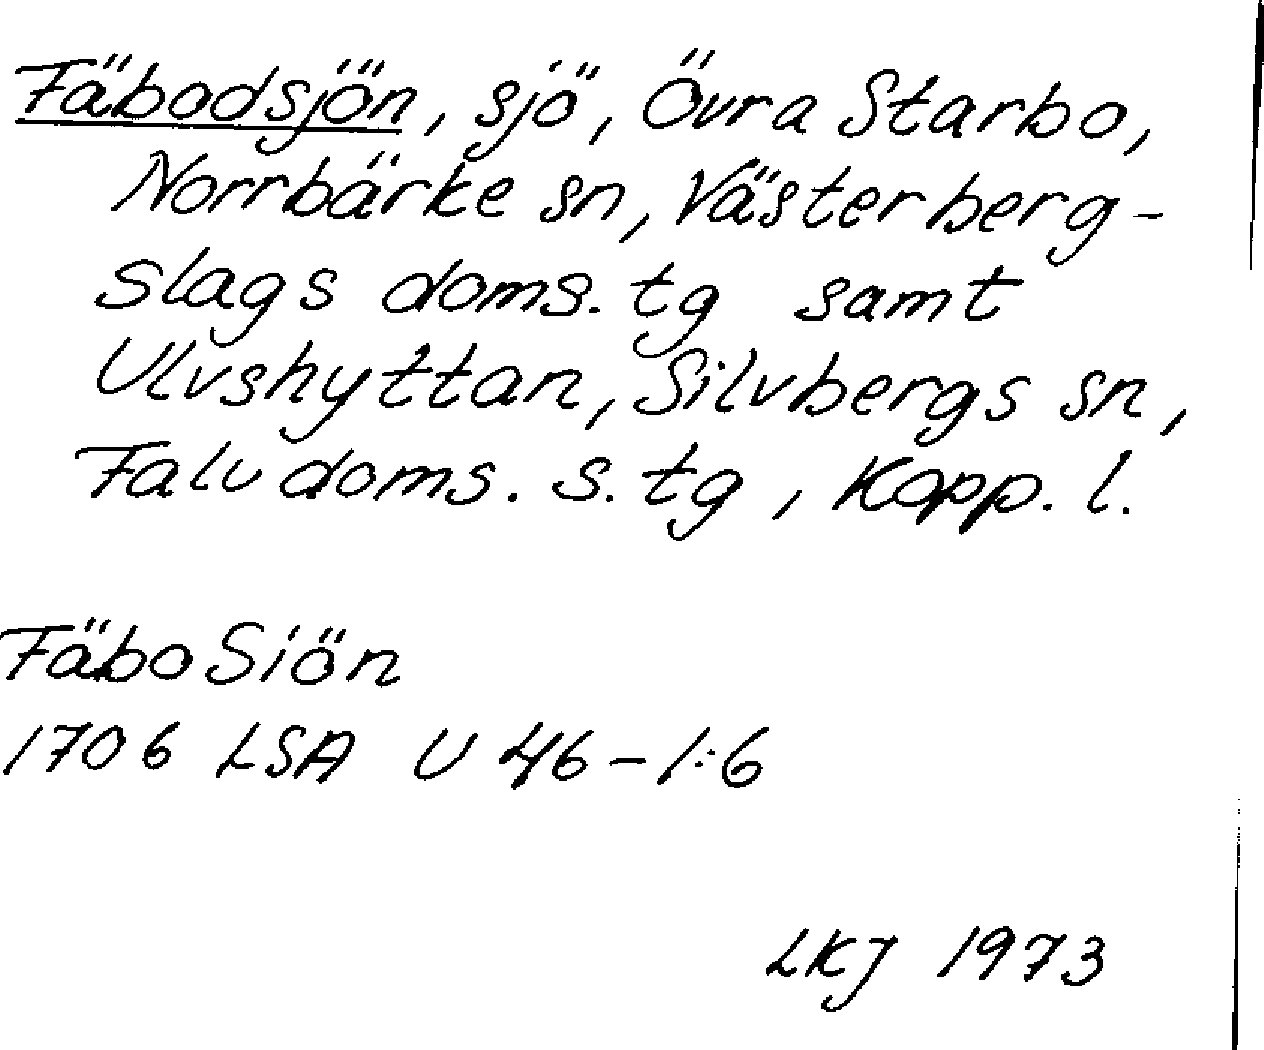 Fäbodsjön, sjö, Övra Starbo,
Norrbärke sn, Västerberg-
slags doms. tg samt
Ulvshyttan, Silvbergs sn,
Falu doms. s. tg, Kopp. l.
FäboSiön
1706 LSA U 46-1:6
LKJ 1973